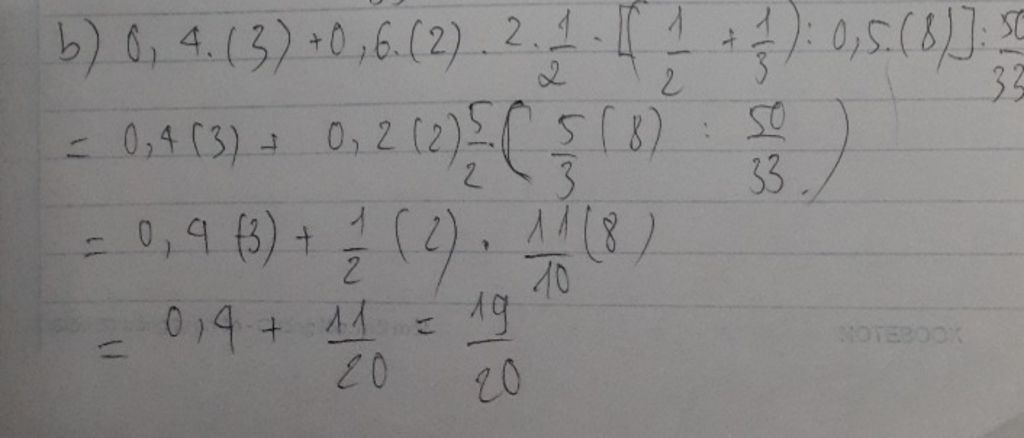 b) 0, 4.(3) + 0, 6.(2) . 2. 1/2 - [( 1/2 + 1/3 ) : 0,5.(8)] : 50/33
= 0,4(3) + 0,2(2) 5/2 . ( 5/3 (8) : 50/33 . )
= 0,4(3) + 1/2 (2) . 11/10 (8)
= 0,4 + 11/20 = 19/20
NOTEBOOK